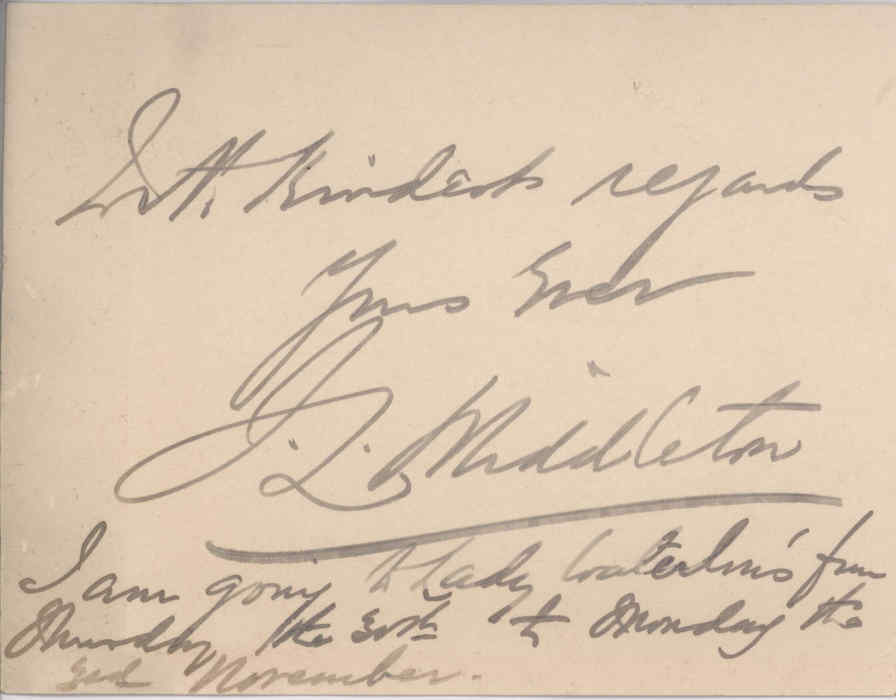 With Kindest regards
Yours Ever
J. L. Middleton
I am going to Lady Waterlow's from
Thursday the 30th to Monday the
3rd November.